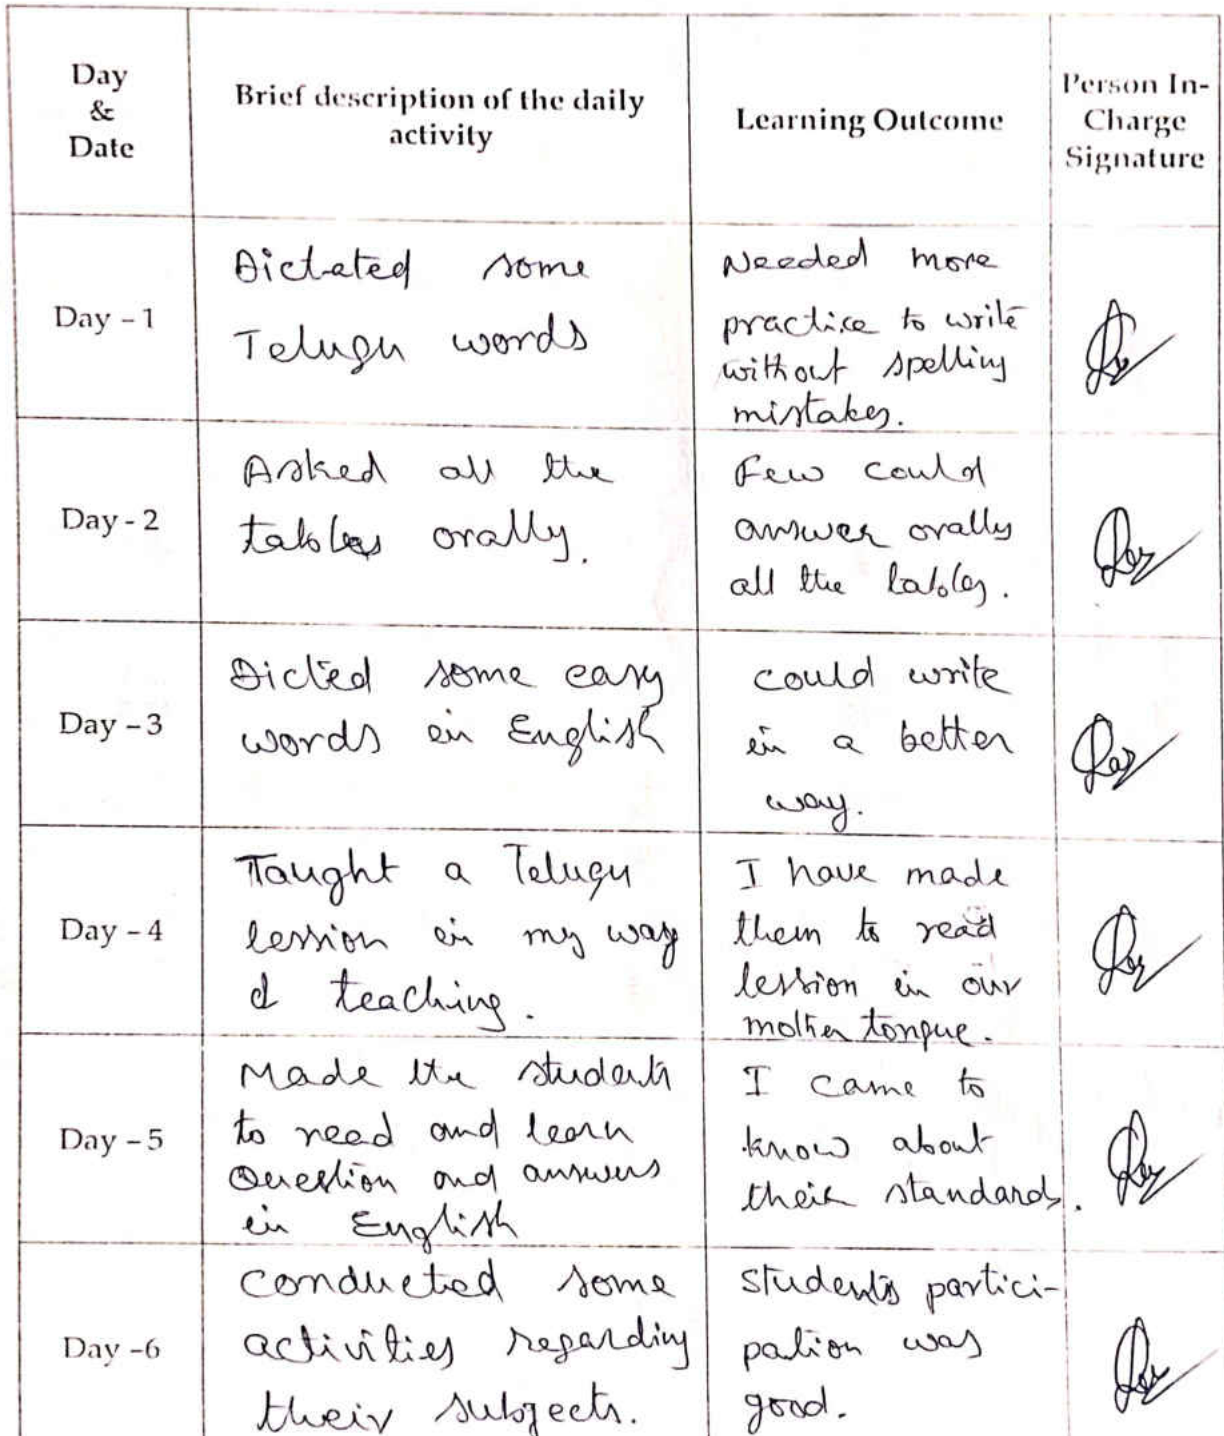 Day
&
Date
Brief description of the daily
activity
Learning Outcome
Person In-
Charge
Signature
Day - 1
Dictated some
Telugu words
Needed more
practice to write
without spelling
mistakes.
Day - 2
Asked all the
tables orally.
Few could
answer orally
all the tables.
Day - 3
Dicted some easy
words in English
could write
in a better
way.
Day - 4
Taught a Telugu
lession in my way
of teaching.
I have made
them to read
lession in our
mother tongue.
Day - 5
Made the students
to read and learn
Question and answers
in English
I came to
know about
their standards.
Day -6
Conducted some
activities regarding
their subjects.
students partici-
pation was
good.